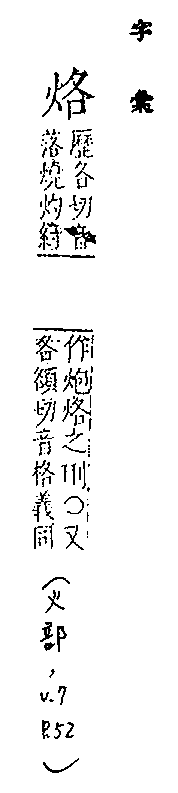 字彙
烙
歷各切音
落燒灼紂
作炮烙之刑○又
各頟切音格義同
(火部, v.7 P.52)